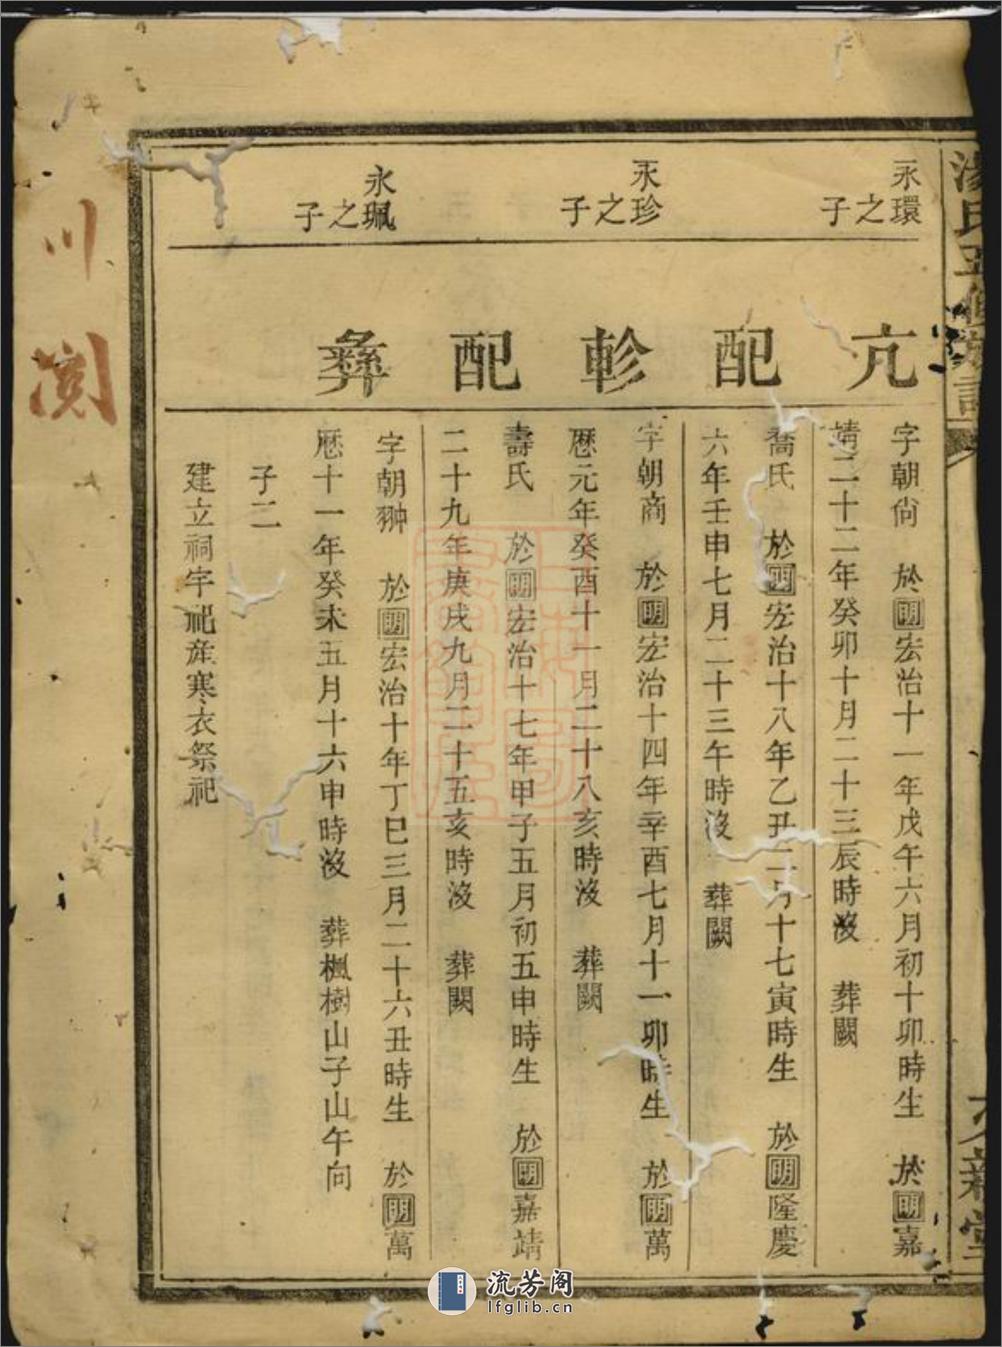 湯氏五修族譜
九新堂
永環
之
子
亢
字朝尙　於明宏治十一年戊午六月初十卯時生　於明嘉
靖二十二年癸卯十月二十三辰時沒　葬闕
配
喬氏　於明宏治十八年乙丑二月十七寅時生　於明隆慶
六年壬申七月二十三午時沒　葬闕
永珍
之
子
軫
字朝商　於明宏治十四年辛酉七月十一卯時生　於明萬
歷元年癸酉十一月二十八亥時沒　葬闕
配
壽氏　於明宏治十七年甲子五月初五申時生　於明嘉靖
二十九年庚戌九月二十五亥時沒　葬闕
永珮
之
子
彝
字朝翀　於明宏治十年丁巳三月二十六丑時生　於明萬
歷十一年癸未五月十六申時沒　葬楓樹山子山午向
子二
建立祠宇祀產寒衣祭祀
流芳阁
lfglib.cn